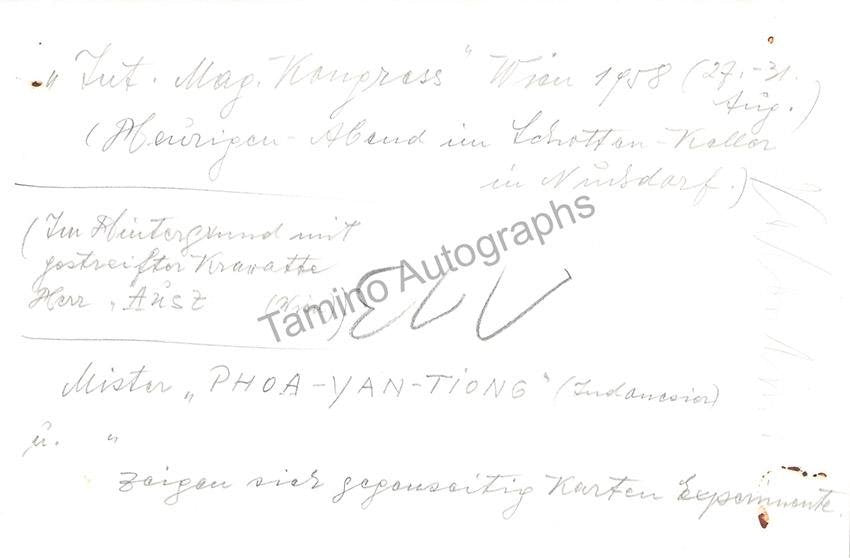 „Int. Mag. Kongress" Wien 1958 (27.-31. Aug.)
(Heurigen-Abend im Schotten-Keller
in Nußdorf.)
(Im Hintergrund mit
gestreifter Kravatte
Herr „AUSZ (Wien)
Mister „PHOA-YAN-TIONG" (Indonesier)
u. „
zeigen sich gegenseitig Karten Experimente.
Tamino Autographs